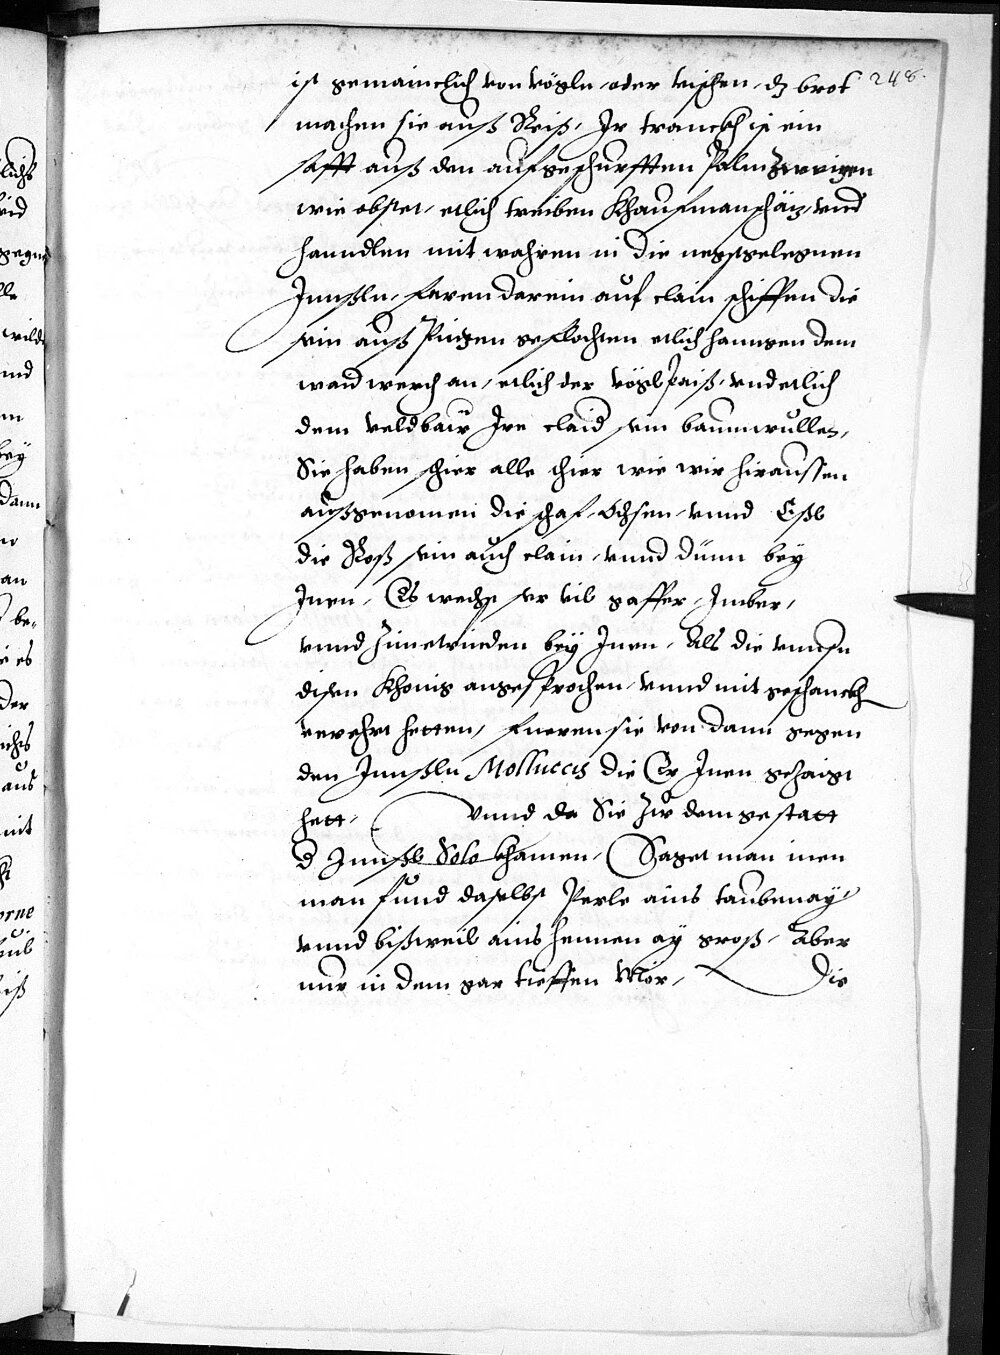 248.
ist gemainclich von vögln, oder vischen, dz brot
machen sie auß Reiß, Ir tranckh ist ein
safft auß den aufgeschurfften Palmzweigen
wie obstet, etlich treiben Khaufmanschatz, vnd
hanndlen mit wahren in die negstgelegnen
Innßln, faren darein auf clain schiffen die
sein auß Pintzen geflochten etlich hanngen dem
waidwerch an, etlich der vöglpaiß, vnd etlich
dem veldbaw Ire claid sein baumwullen,
Sie haben schier alle thier wie wir hiraussen
außgenomen die schaf, Ochsen, vnnd Eßl
die Roß sein auch clain, vnnd dünn bey
Inen, Es wechst ser vil gaffer, Imber,
vnnd Zimetrinden bey Inen, Als die vnnsn
disen Khonig angesprochen, vnnd mit geschanckh
verehrt hetten, fueren sie von dann gegen
den Innßln Molluccis die Er Inen gezaigt
hett, Vnnd da Sie Zw dem gestatt
d Innßl Solo khamen, Saget man inen
man fund daselbst Perle ains taubenay,
vnnd bißweil ains hennen ay groß, Aber
nur in dem gar tieffen Mör, Die